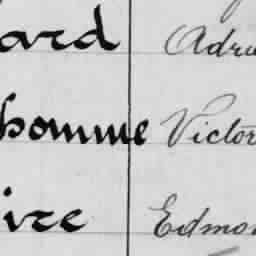 ard Adri
homme Victor
ire Edmon